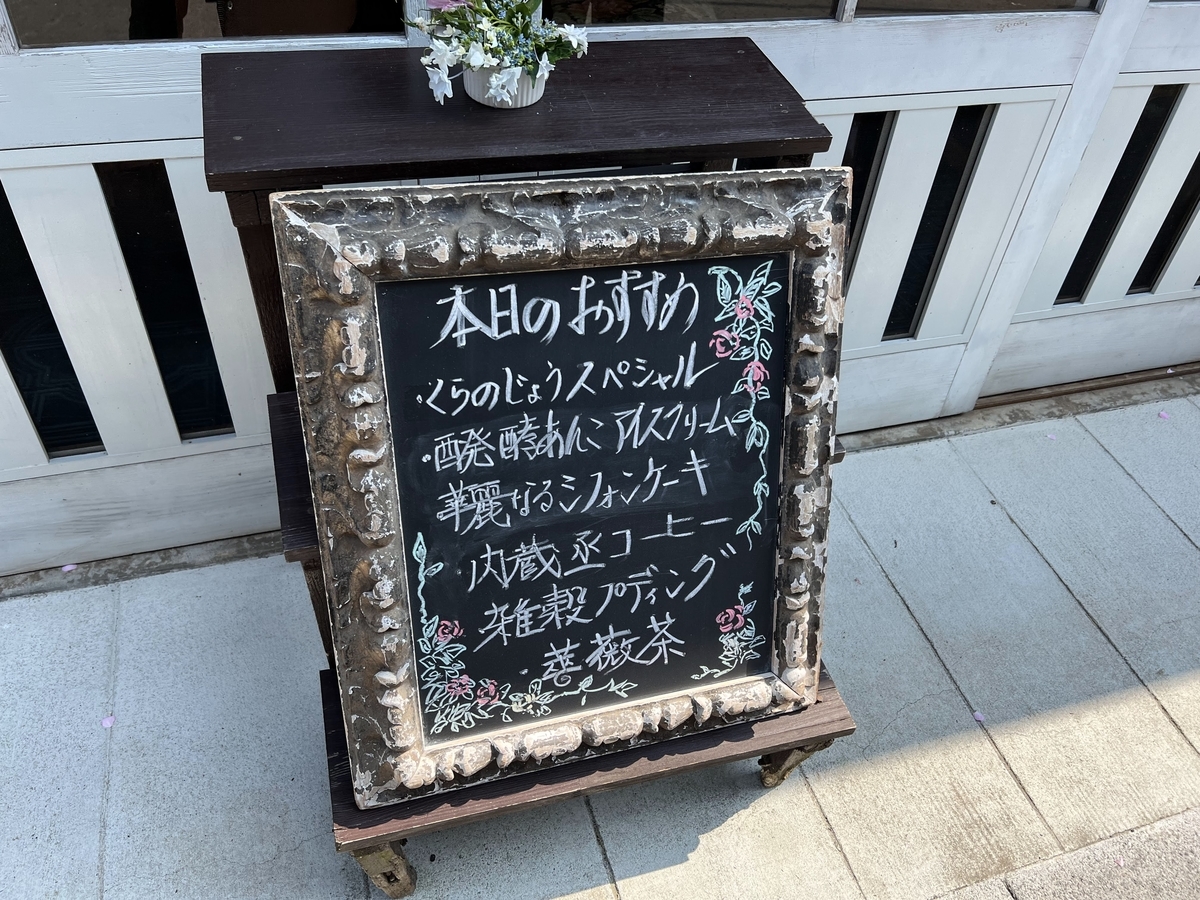 本日のおすすめ
・くらのじょうスペシャル
・醗発酵あんこアイスクリーム
華麗なるシフォンケーキ
内蔵丞コーヒー
雑穀プディング
・薔薇茶